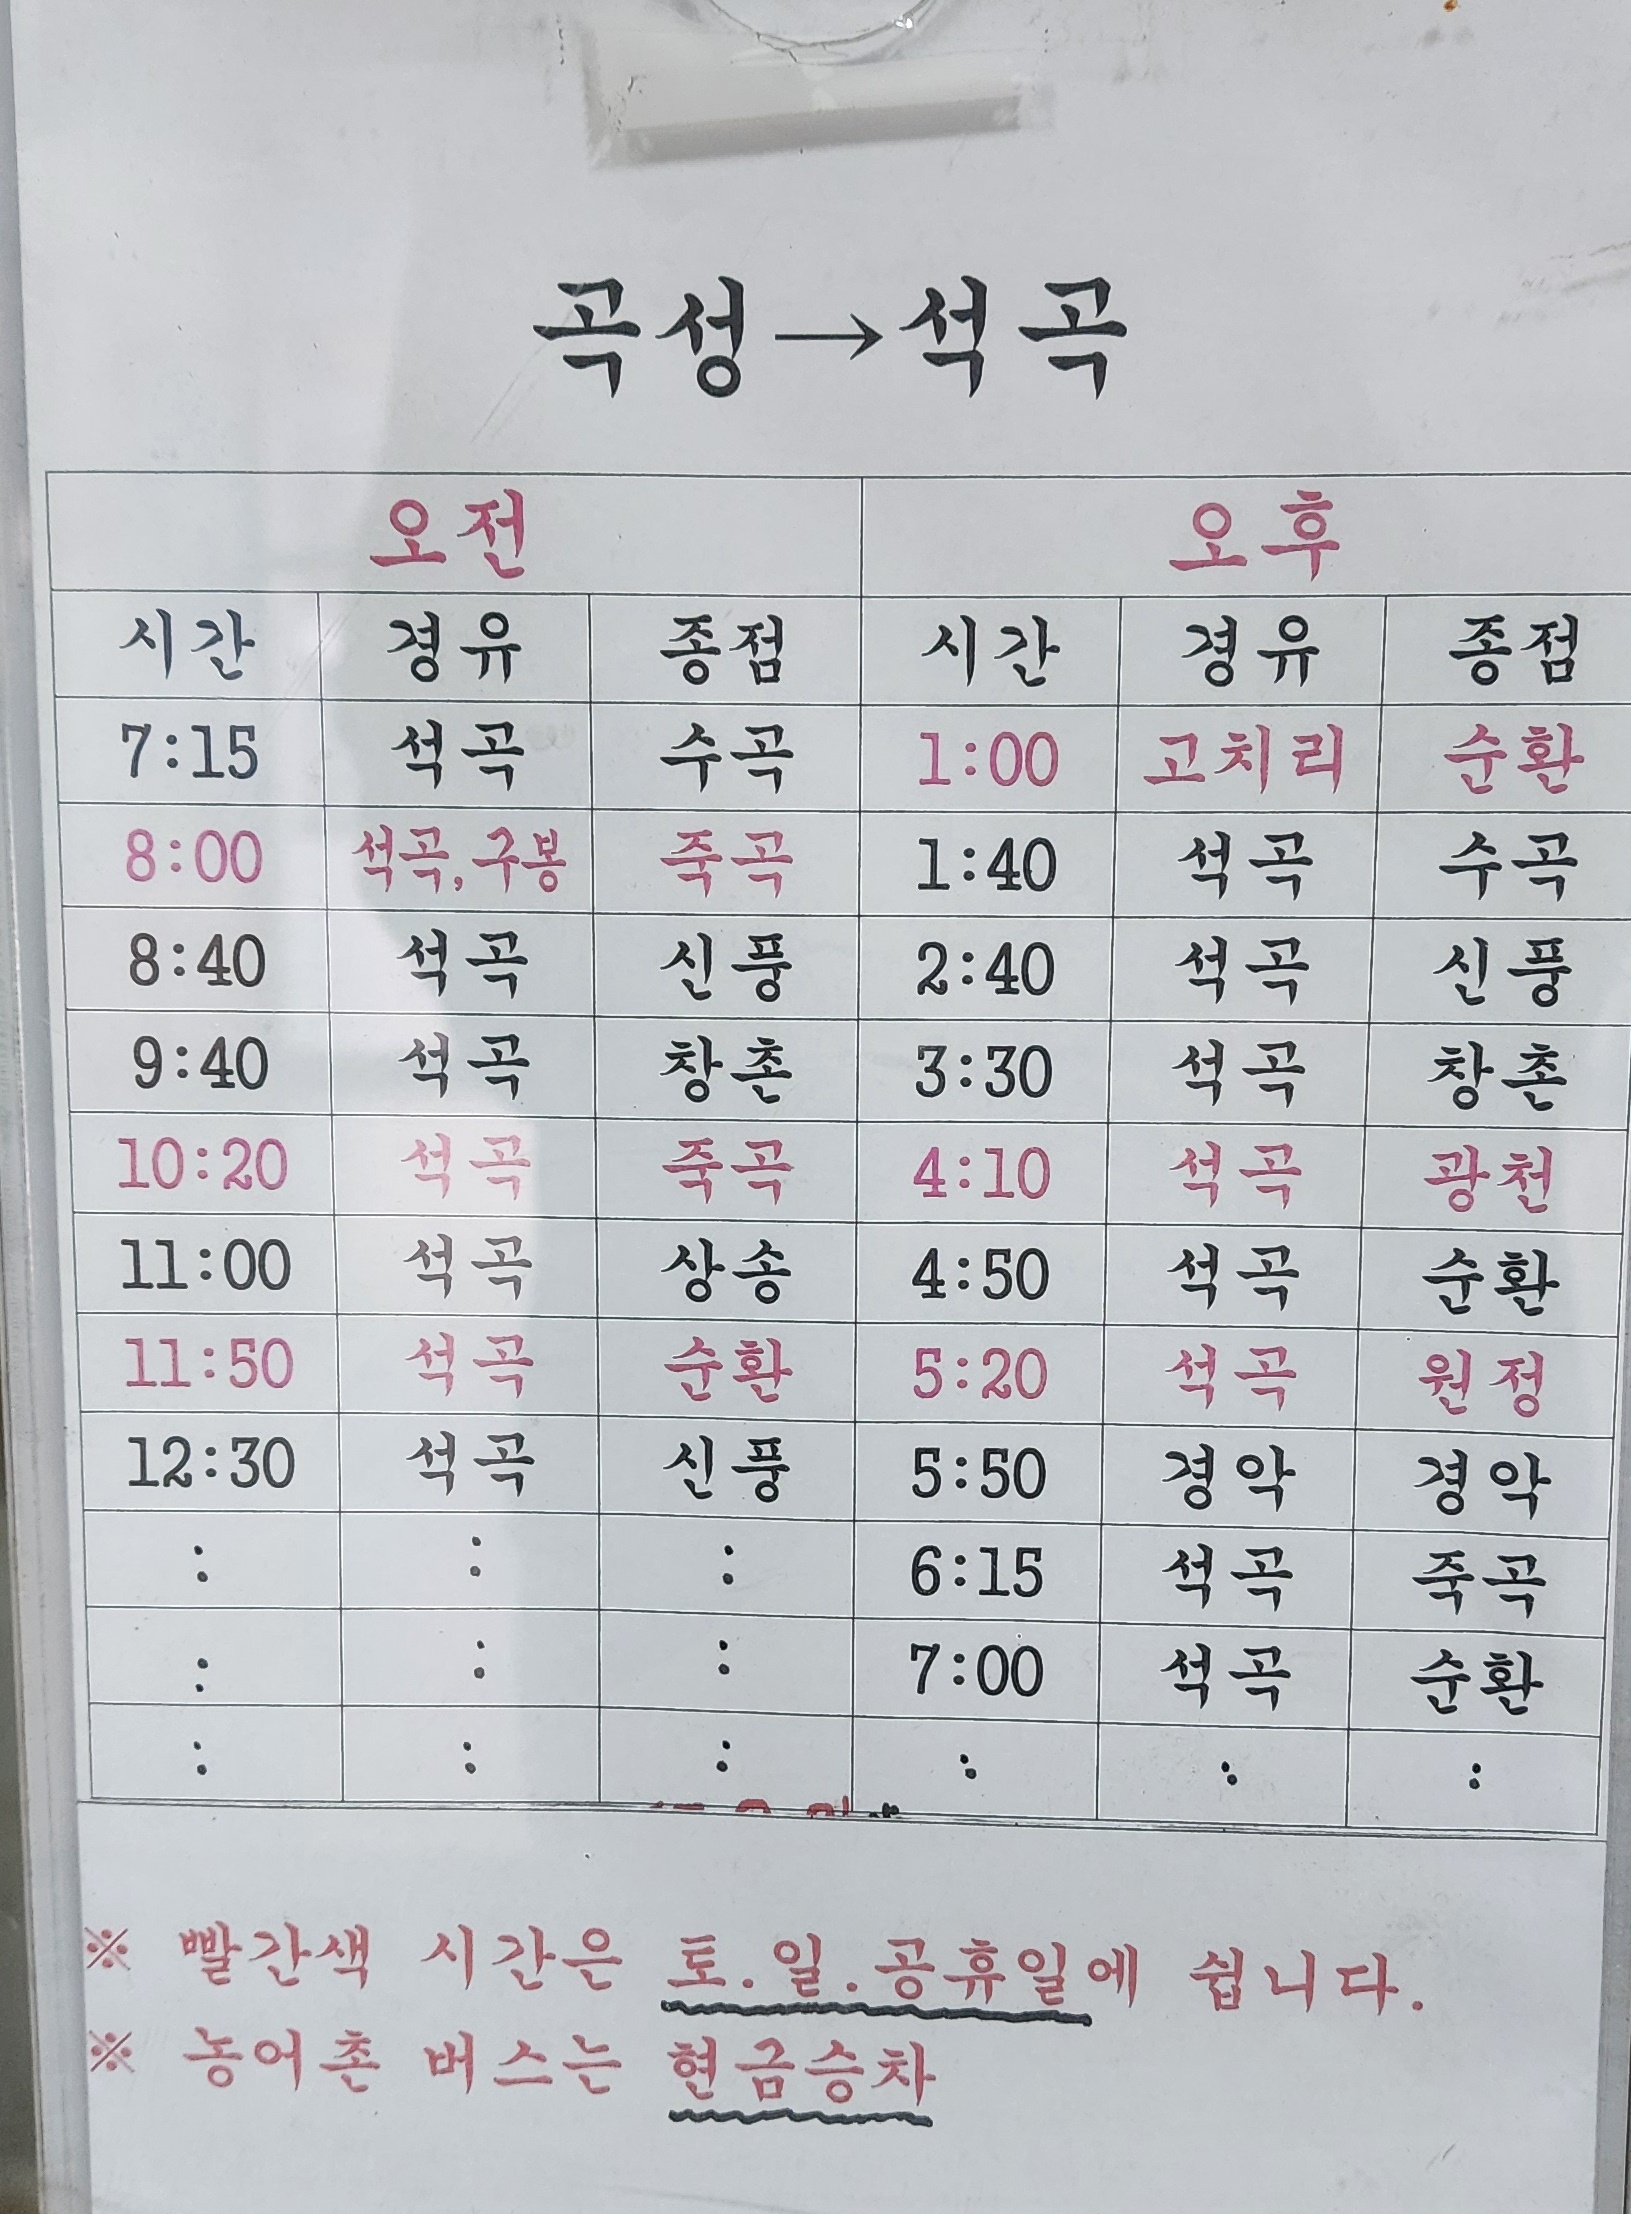 곡성→석곡
오전 오후
시간 경유 종점 시간 경유 종점
7:15 석곡 수곡 1:00 고치리 순환
8:00 석곡,구봉 죽곡 1:40 석곡 수곡
8:40 석곡 신풍 2:40 석곡 신풍
9:40 석곡 창촌 3:30 석곡 창촌
10:20 석곡 죽곡 4:10 석곡 광천
11:00 석곡 상송 4:50 석곡 순환
11:50 석곡 순환 5:20 석곡 원정
12:30 석곡 신풍 5:50 경악 경악
: : : 6:15 석곡 죽곡
: : : 7:00 석곡 순환
: : : : : :
※ 빨간색 시간은 토.일.공휴일에 쉽니다.
※ 농어촌 버스는 현금승차